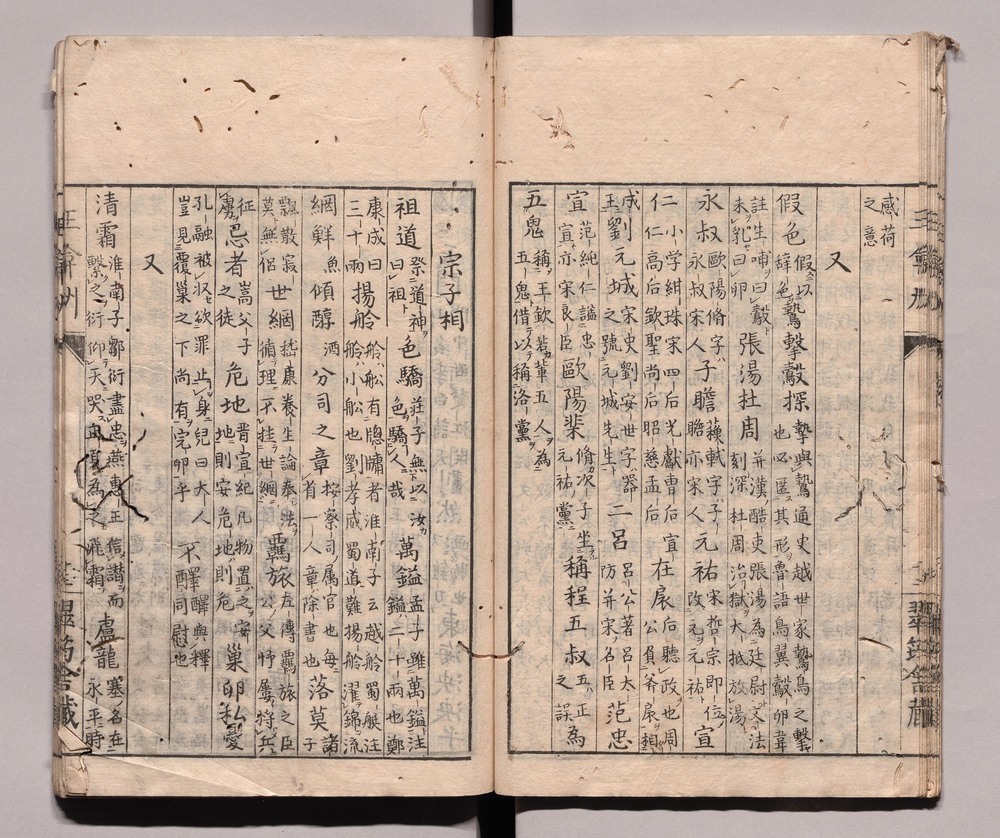 感荷
之意
又
假色 假以
辭色 鷙擊鷇探 摯與鷙通史越世家鷙鳥之擊
也必匿其形魯語鳥翼鷇卵韋
註生哺曰鷇
未乳曰卵 張湯杜周 並漢酷吏張湯為廷尉文法
刻深杜周治獄大抵放湯
永叔 歐陽脩字
永叔宋人 子瞻 蘓軾字子
瞻亦宋人 元祐 宋哲宗即位
改元元祐 宣
仁 小学紺珠宋四后光獻曹后宣
仁高后欽聖尚后昭慈孟后 在扆 后聽政也周
公負斧扆
成 劉元城 宋史劉安世字器
之號元城先生 二呂 呂公著呂太
防並宋名臣 范忠
宣 范純仁謚忠
宣亦宋良臣 歐陽棐 脩次子坐
元祐黨 稱程五叔 五正
之誤 為
五鬼 稱王欽若輩五人為
五鬼借以稱洛黨
宗子相
祖道 祭道神
曰祖 色驕 莊子無以汝
色驕人哉 萬鎰 孟子雖萬鎰注
鎰二十兩也鄭
康成曰
三十兩 揚舲 舲船有牕牖者淮南子云越舲蜀艇注
舲小船也劉孝威蜀道難揚舲濯錦流
網鮮 魚 傾醇 酒 分司之章 按察司属官也每
省一人章除書也 落莫 諸子
飄散寂
莫無侶 世網 嵇康養生論奉法
循理不挂世網 羈旅 左傳羈旅之臣
公父忤屢將兵
征
虜 忌者 嵩父子
之徒 危地 肯宜紀凡物置之安
地則安危地則危 巢卵私憂
孔融被收欲罪止身兒曰大人
豈見覆巢之下尚有完卵乎 不醳 醳與釋
同慰也
又
清霜 淮南子鄒衍盡忠燕惠王信譖而
繫之衍仰天哭 盧龍 塞名在
永平時
翠筠舎藏